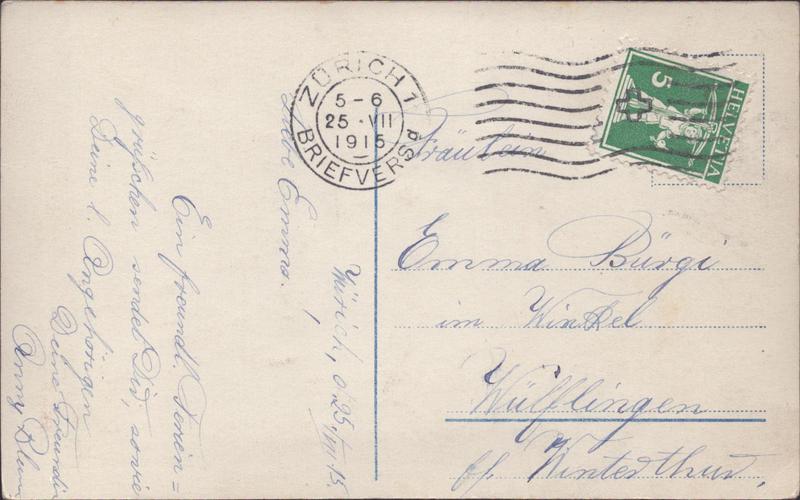 Zürich, d. 25. VII 15.
Liebe Emma.
Ein freundl. Ferien=
grüschen sendet Dir, sowie
Deine l. Angehörigen
Deine Freundin
Anny Blum
ZÜRICH 1
5-6
25·VII
1915
BRIEFVERSd
HELVETIA
5
Fräulein
Emma Bürgi
im Winkel
Wülflingen
bei Winterthur.